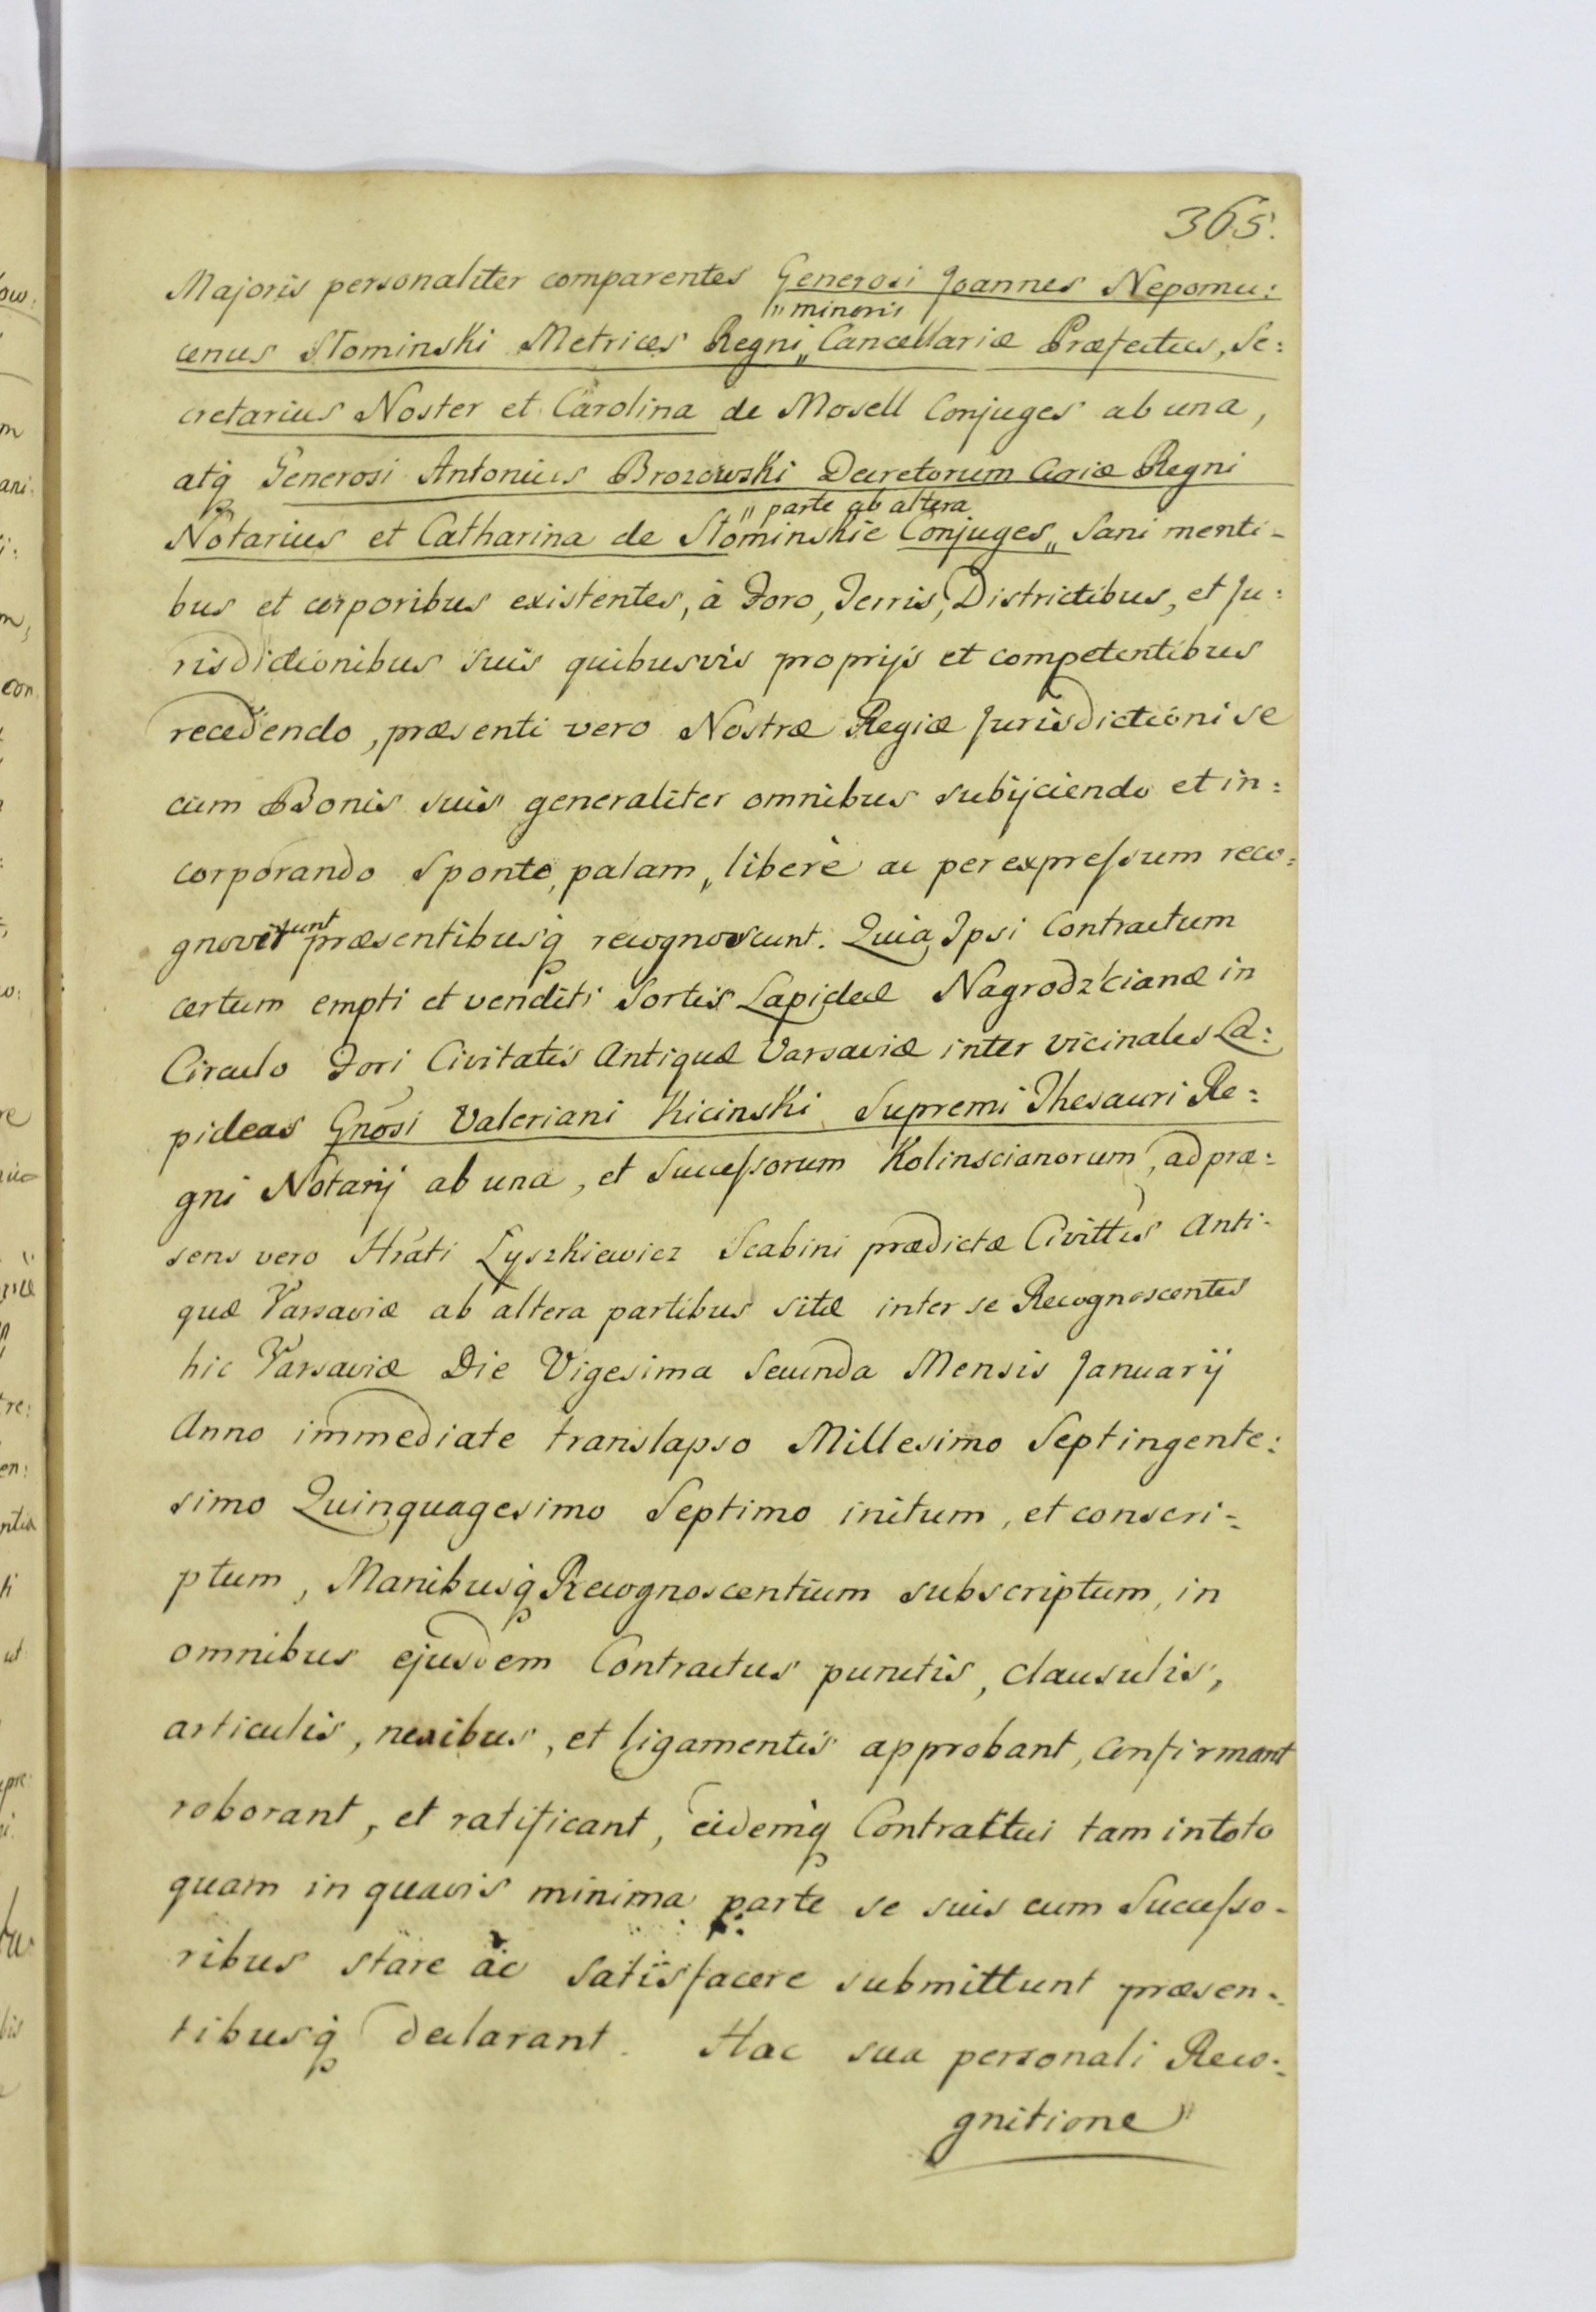 365.
Majoris personaliter comparentes Generosi Joannes Nepomu:
" minoris
cenus Słominski Metrices Regni „ Cancellariæ Præfectus, Se:
cretarius Noster et Carolina de Mosell Conjuges ab una,
atq Generosi Antonius Brozowski Decretorum Curiæ Regni
" parte ab altera
Notarius et Catharina de Słominskie Conjuges „ Sani menti-
bus et corporibus existentes, à Foro, Terris, Districtibus, et Ju:
risdictionibus suis quibusvis proprijs et competentibus
recedendo, præsenti vero Nostræ Regiæ Jurisdictioni se
cum Bonis suis generaliter omnibus subijciendo et in:
corporando Sponte, palam, liberè ac per expressum reco:
gnoverunt præsentibusq recognoscunt. Quia Ipsi Contractum
certum empti et venditi Sortis Lapideæ Nagrodzkcianæ in
Circulo Fori Civitatis Antiquæ Varsaviæ inter vicinales La:
pideas Gnosi Valeriani Kicinski Supremi Thesauri Re:
gni Notarij ab una, et Successorum Kolinscianorum, ad præ:
sens vero Hrati Łyszkiewicz Scabini prædictæ Civittis Anti-
quæ Varsaviæ ab altera partibus sitæ inter se Recognoscentes
hic Varsaviæ Die Vigesima Secunda Mensis Januarij
Anno immediate translapso Millesimo Septingente:
simo Quinquagesimo Septimo initum, et conscri-
ptum, Manibusq Recognoscentium subscriptum, in
omnibus ejusdem Contractus punctis, clausulis,
articulis, nexibus, et ligamentis approbant, confirmant
roborant, et ratificant, eidemq Contractui tam in toto
quam in quavis minima parte se suis cum Successo-
ribus stare ac satisfacere submittunt præsen-
tibusq declarant. Hac sua personali Reco:
gnitione